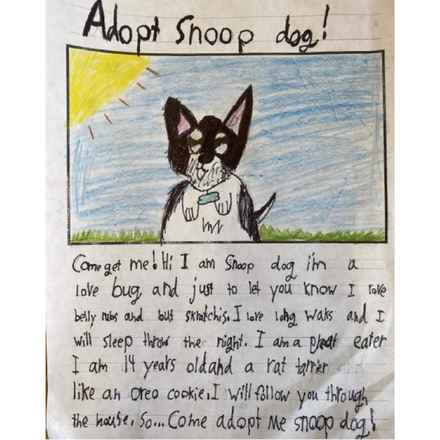 Adopt Snoop dog!
Come get me! Hi I am Snoop dog i'm a
love bug, and just to let you know I love
belly rubs and but skratchis. I love long waks and I
will sleep throw the night. I am a great eater
I am 14 years old and a rat tarrier
like an oreo cookie. I will follow you through
the house. So... Come adopt me snoop dog!